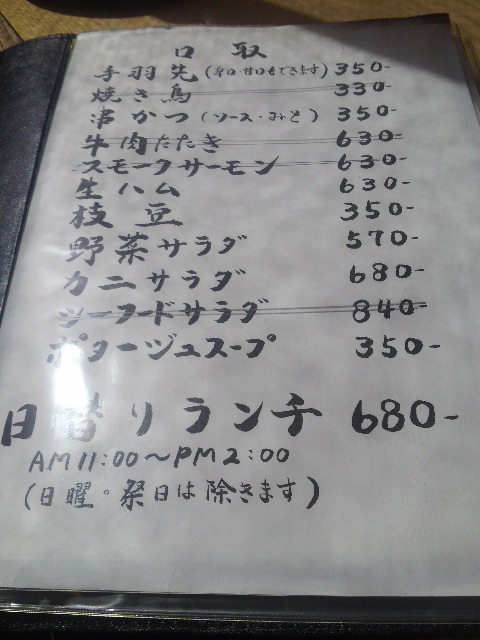 口取
手羽先(辛口・甘口もできます) 350-
焼き鳥 330-
串かつ(ソース・みそ) 350-
牛肉たたき 630-
スモークサーモン 630-
生ハム 630-
枝豆 350-
野菜サラダ 570-
カニサラダ 680-
シーフードサラダ 840-
ポタージュスープ 350-
日替りランチ 680-
AM11:00〜PM2:00
(日曜。祭日は除きます)